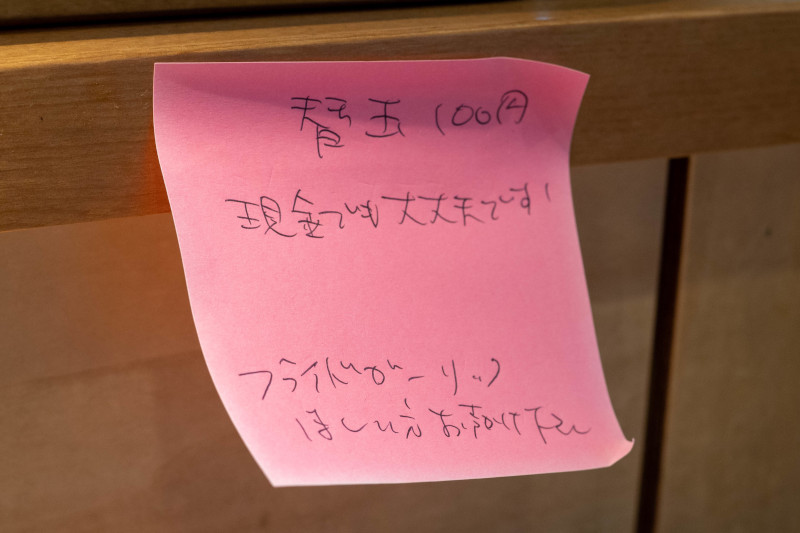 替玉 100円
現金でも大丈夫です!
フライドガーリック
ほしい方お声がけ下さい